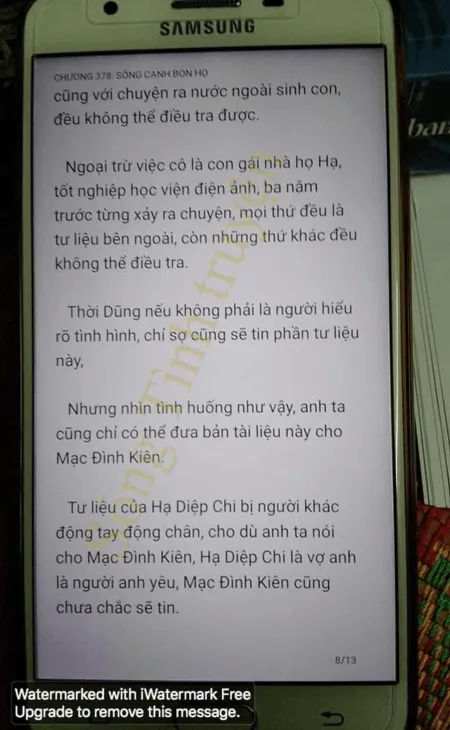 SAMSUNG
CHƯƠNG 378: SỐNG CẠNH BỌN HỌ
cũng với chuyện ra nước ngoài sinh con,
đều không thể điều tra được.
Ngoại trừ việc cô là con gái nhà họ Hạ,
tốt nghiệp học viện điện ảnh, ba năm
trước từng xảy ra chuyện, mọi thứ đều là
tư liệu bên ngoài, còn những thứ khác đều
không thể điều tra.
Thời Dũng nếu không phải là người hiểu
rõ tình hình, chỉ sợ cũng sẽ tin phần tư liệu
này,
Nhưng nhìn tình huống như vậy, anh ta
cũng chỉ có thể đưa bản tài liệu này cho
Mạc Đình Kiên.
Tư liệu của Hạ Diệp Chi bị người khác
động tay động chân, cho dù anh ta nói
cho Mạc Đình Kiên, Hạ Diệp Chi là vợ anh
là người anh yêu, Mạc Đình Kiên cũng
chưa chắc sẽ tin.
8/13
Watermarked with iWatermark Free
Upgrade to remove this message.